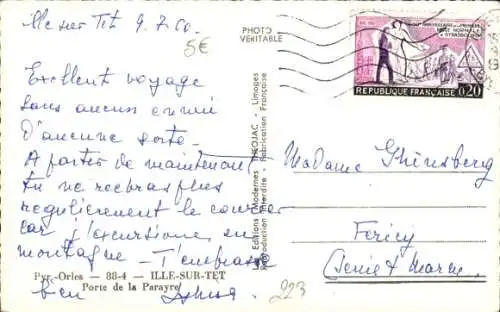 Ille sur Tet 9.7.60.
5€
Excellent voyage
sans aucun ennui
d'aucune sorte.
A partir de maintenant
tu ne recevras plus
regulierement le courrier
car j'excursionne en
montagne - t'embrasse
bien
PHOTO
VERITABLE
RÉPUBLIQUE FRANÇAISE 0,20
Les Editions Modernes THEOJAC - Limoges
Reproduction Interdite Fabrication Française
Madame Ghinsberg
Fericy
Seine et Marne
Pyr.-Orles — 88-4 — ILLE-SUR-TET
Porte de la Parayre
223